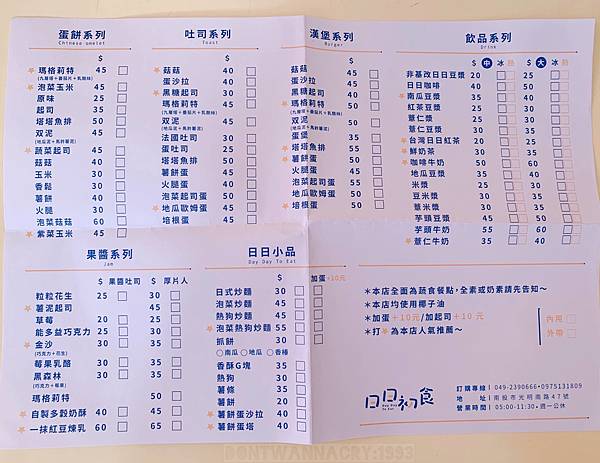 蛋餅系列
Chinese omelet
$
瑪格莉特 45
(九層塔+番茄片+乳酪絲)
泡菜玉米 45
原味 25
起司 35
塔塔魚排 50
双泥 45
(地瓜泥+馬鈴薯泥)
蔬菜起司 45
菇菇 40
玉米 30
香鬆 30
薯餅 40
火腿 30
泡菜菇菇 60
紫菜玉米 45
吐司系列
Toast
$
菇菇 40
蛋沙拉 40
黑糖起司 30
瑪格莉特 45
(九層塔+番茄片+乳酪絲)
双泥 45
(地瓜泥+馬鈴薯泥)
法國吐司 30
蛋吐司 30
塔塔魚排 50
薯餅蛋 40
火腿蛋 40
泡菜起司蛋 50
地瓜歐姆蛋 45
培根蛋 45
漢堡系列
Burger
$
菇菇 45
蛋沙拉 45
黑糖起司 40
瑪格莉特 50
(九層塔+番茄片+乳酪絲)
双泥 50
(地瓜泥+馬鈴薯泥)
蛋堡 35
塔塔魚排 55
薯餅蛋 50
火腿蛋 45
泡菜起司蛋 55
地瓜歐姆蛋 50
培根蛋 50
飲品系列
Drink
$ 中 冰 熱 $ 大 冰 熱
非基改日日豆漿 20 25
日日咖啡 40 50
南瓜豆漿 35 40
紅茶豆漿 25 30
薏仁漿 25 30
薏仁豆漿 25 30
台灣日日紅茶 20 25
鮮奶茶 30 35
咖啡牛奶 50 60
地瓜豆漿 35 40
米漿 25 30
豆米漿 25 30
薏米漿 25 30
芋頭豆漿 45 50
芋頭牛奶 55 60
薏仁牛奶 35 40
果醬系列
Jam
$ 果醬吐司 $ 厚片人
粒粒花生 25 30
薯泥起司 45
草莓 20 25
能多益巧克力 25 30
金沙 30 35
(巧克力+花生)
莓果乳酪 30 35
黑森林 30 35
(巧克力+莓果)
瑪格莉特 50
自製多穀奶酥 40 65
一抹紅豆煉乳 45 60
日日小品
Day Day To Eat
$ 加蛋+10元
日式炒麵 30
泡菜炒麵 45
熱狗炒麵 45
泡菜熱狗炒麵 55
抓餅 30
○南瓜 ○地瓜 ○香椿
香酥G塊 35
熱狗 30
薯條 35
薯餅 20
薯餅蛋沙拉 40
薯餅蛋塔 40
*本店全面為蔬食餐點,全素或奶素請先告知~
*本店均使用椰子油
*加蛋+10元/加起司+10元
*打★為本店人氣推薦~
內用
外帶
日日初食
Day Day To Eat
訂購專線|049-2390666•0975131809
地 址|南投市光明南路47號
營業時間|05:00-11:30•週一公休
DONTWANNACRY:1993